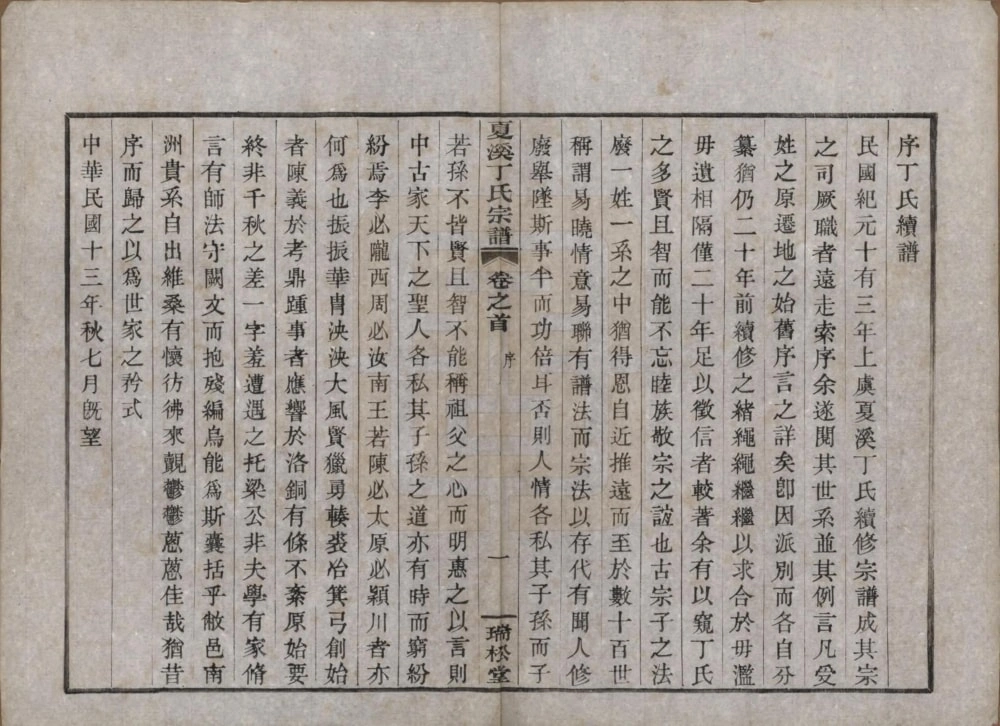 序丁氏續譜
民國紀元十有三年上虞夏溪丁氏續修宗譜成其宗
之司厥職者遠走索序余遂閱其世系並其例言凡受
姓之原遷地之始舊序言之詳矣卽因派別而各自分
纂猶仍二十年前續修之緒繩繩繼繼以求合於毋濫
毋遺相隔僅二十年足以徵信者較著余有以窺丁氏
之多賢且智而能不忘睦族敬宗之誼也古宗子之法
廢一姓一系之中猶得恩自近推遠而至於數十百世
稱謂易曉情意易聯有譜法而宗法以存代有聞人修
廢舉墜斯事半而功倍耳否則人情各私其子孫而子
夏溪丁氏宗譜
卷之首
序
一
瑞松堂
若孫不皆賢且智不能稱祖父之心而明惠之以言則
中古家天下之聖人各私其子孫之道亦有時而窮紛
紛焉李必隴西周必汝南王若陳必太原必潁川者亦
何爲也振振華胄泱泱大風賢獵勇輳裘冶箕弓創始
者陳義於考鼎踵事者應響於洛銅有條不紊原始要
終非千秋之差一字羞遭遇之托梁公非夫學有家脩
言有師法守闕文而抱殘編烏能爲斯囊括乎敝邑南
洲貴系自出維桑有懷彷彿來觀鬱鬱蔥蔥佳哉猶昔
序而歸之以爲世家之矜式
中華民國十三年秋七月旣望